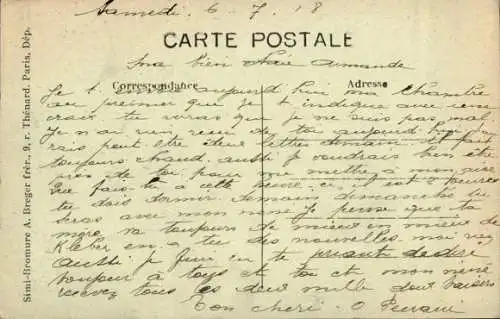 Samedi 6 - 7 / 18
CARTE POSTALE
ma bien chère Armande
Correspondance
Adresse
Je t'envoie aujourd'hui ma chambre
au premier que je t'indique avec une
croix tu vois que je ne suis pas mal.
Je n'ai rien reçu de toi aujourd'hui
rais peut être deux lettres demain. Il fait
toujours chaud. aussi je voudrais bien être
près de toi pour me mettre à mon aise
Que fais-tu à cette heure ci il est 2 heures
tu dois dormir. demain dimanche tu
seras avec mon mené je pense que ta
mère va toujours de mieux en mieux de
Kleber en a tu des nouvelles. moi rien
Aussi je finis en te priant de dire
bonjour à tous et toi et mon mené
recevez tous les deux mille doux baisers
Ton chéri
Simi-Bromure A. Breger frèr., 9, r. Thénard, Paris, Dép.